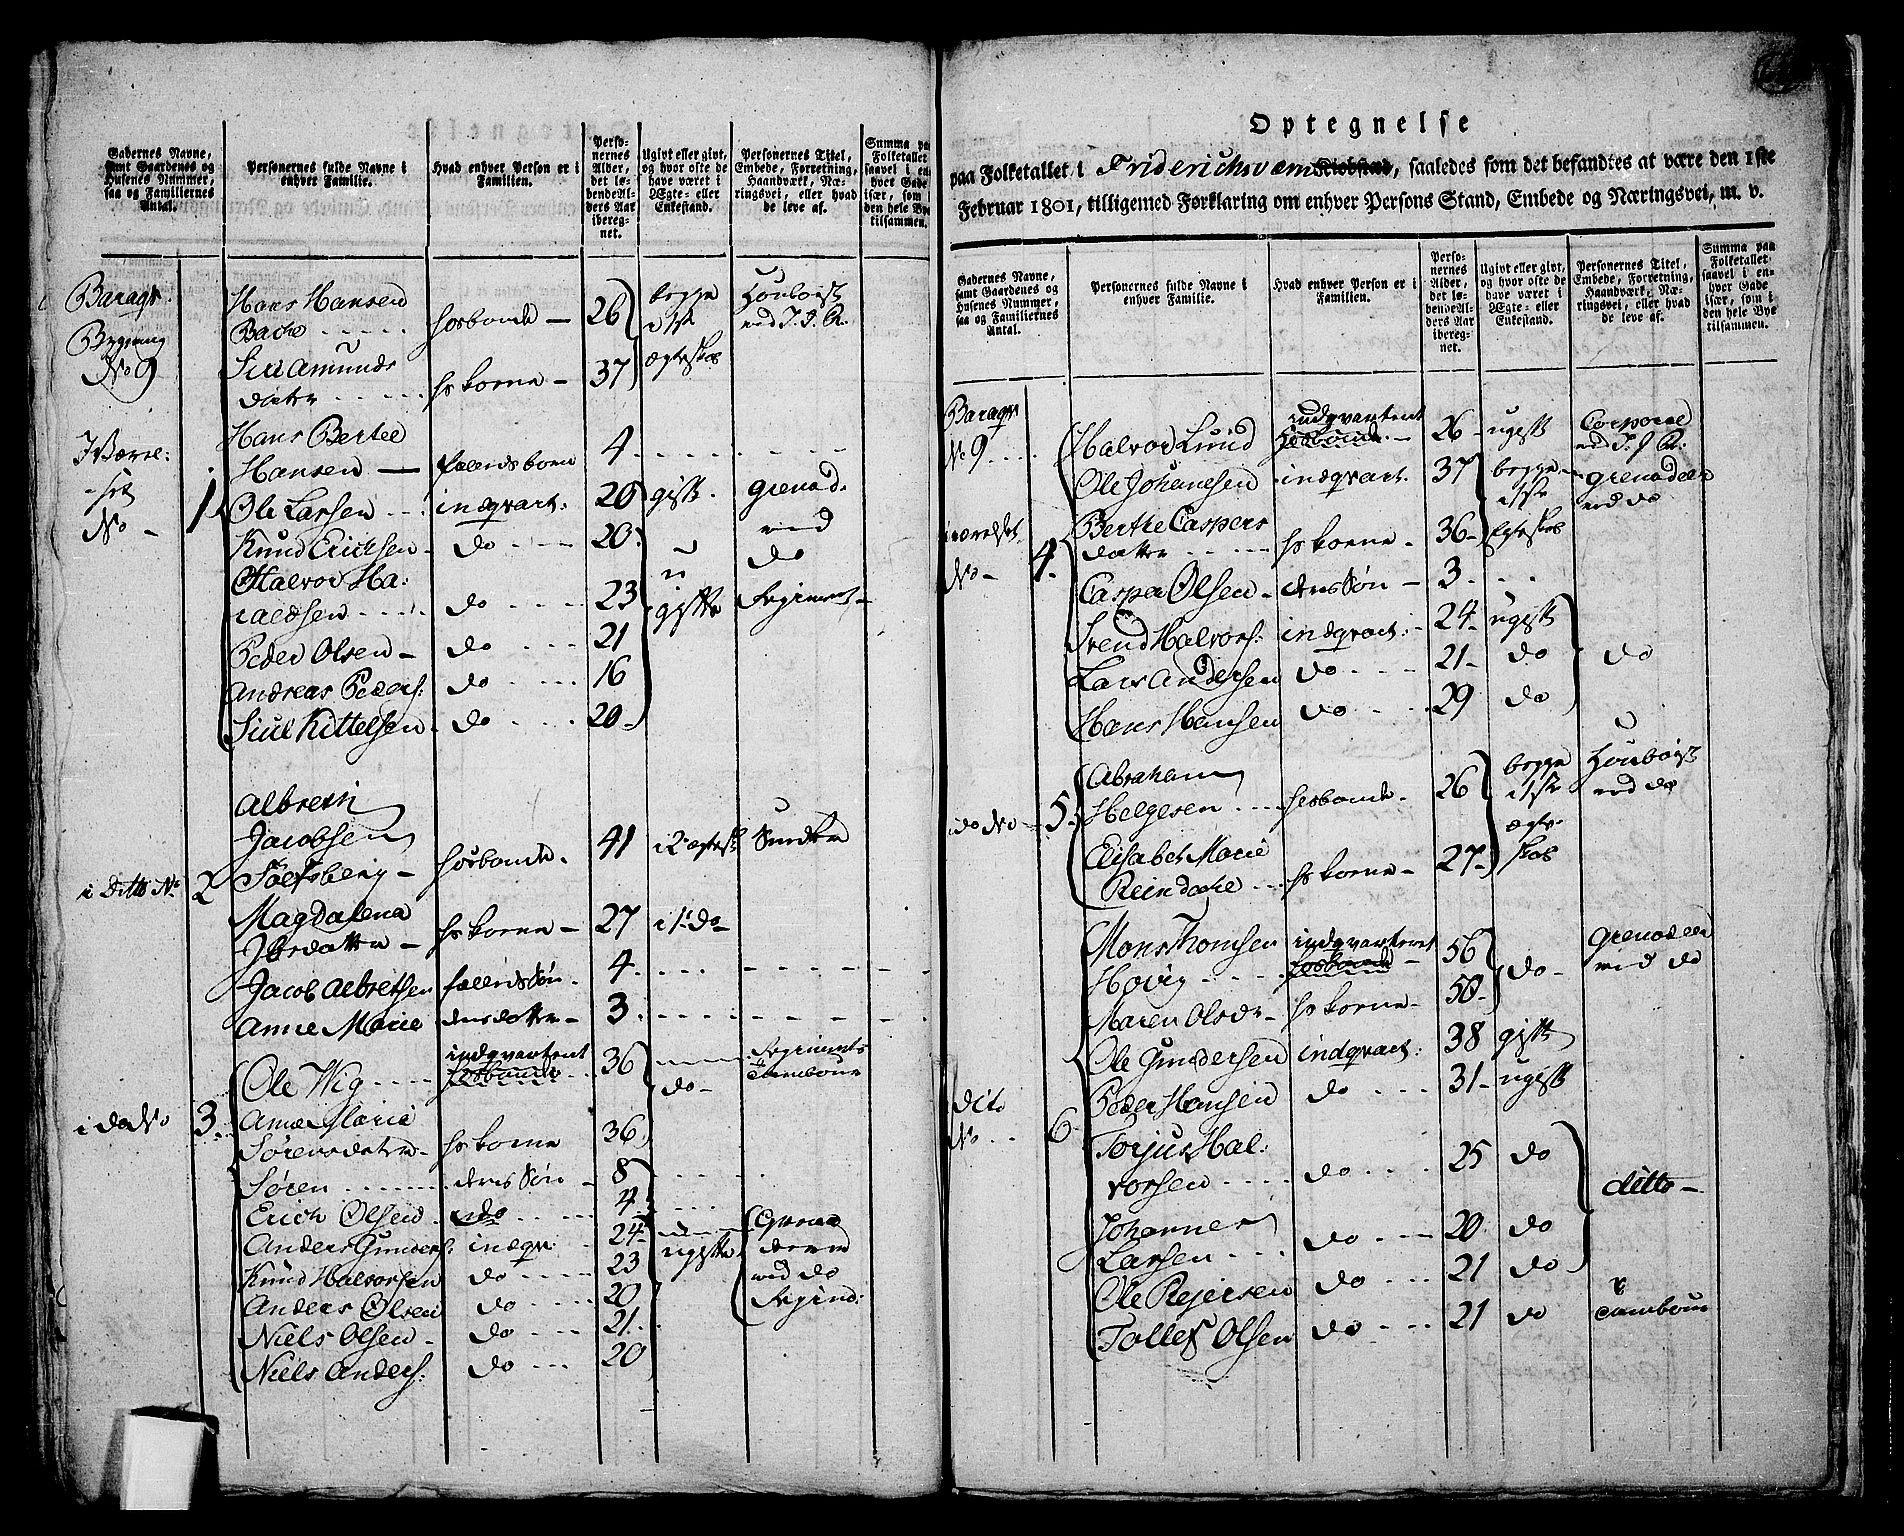 Gadernes Navne,
samt Gaardenes og
Husenes Nummer,
saa og Familiernes
Antal.
Personernes fulde Navne i
enhver Familie.
Hvad enhver Person er i
Familien.
Perso-
nernes
Alder,
det lø-
bende Al-
ders Aar
iberег-
net.
Ugivt eller givt,
og hvor ofte de
have været i
Ægte- eller
Enkestand.
Personernes Titel,
Embede, Forretning,
Haandværk, Næ-
ringsvei, eller hvad
de leve af.
Summa paa
Folketallet
saavel i en-
hver Gade
især, som i
den hele Bye
tilsammen.
Baraqv.
Bygning
No 9
Hans Hansen
Bache husbonde 26 begge Houboist
i 1ste ved J. J. R.
Siul Amunds
datter hs kone 37 ægteskab
Hans Bertel
Hansen fælledsbørn 4
No 1. Ole Larsen indqvart: 20 gift. grenad.
Knud Erichsen do 20 ved
Halvor Ha:
raldsen do 23 do
Peder Olsen do 21 ugifte Regiment
Andreas Peders: do 16
Siul Kittelsen do 20
Albreth
Jacobsen
i Ditto No 2 Falksberg husbonde 41 i 2 ægtesk.
Magdalena
Jbsdatter hs kone 27 i 1. do
Jacob Albretsen fælledssøn 4
Anne Marie deres datter 3.
Ole Wig indqvarteret husbonde 36 do Regiments Tambour
i do No 3. Anne Maria
Sørensdatter hs kone 36
Søren deres Søn 8
Erich Olsen do 4
Anders Gunders: indqv: 24 ugifte
Knud Halvorsen do 23 ved do
Anders Olsen do 20 Regind:
Niels Olsen do 21
Niels Anders: do 20
Optegnelse
paa Folketallet i Friderichsværn Kiøbsted, saaledes som det befandtes at være den 1ste
Februar 1801, tilligemed Forklaring om enhver Persons Stand, Embede og Næringsvei, m. v.
Gadernes Navne,
samt Gaardenes og
Husenes Nummer,
saa og Familiernes
Antal.
Personernes fulde Navne i
enhver Familie.
Hvad enhver Person er i
Familien.
Perso-
nernes
Alder,
det lø-
bende Al-
ders Aar
ibereg-
net.
Ugivt eller givt,
og hvor ofte de
have været i
Ægte- eller
Enkestand.
Personernes Titel,
Embede, Forretning,
Haandværk, Næ-
ringsvei, eller hvad
de leve af.
Summa paa
Folketallet
saavel i en-
hver Gade
især, som i
den hele Bye
tilsammen.
Baraqv
No 9 Halvor Lund indqvarteret husbonde 26 ugift Corporal ved J. J. R:
Ole Johanesen indqvart. 37 begge i 1ste grenadeer ved do
Berthe Caspers
datter hs kone 36 Egteskab
No 4. Casper Olsen deres Søn 3
Svend Halvors: indqvart: 24 ugift
Lars Andersen do 21 do do
Hans Hansen do 29 do
Abraham
i do No 5. Helgesen husbonde 26 begge i 1ste Houboist ved do
Elisabet Marie
Reindahl hs kone 27 ægteskab
Mons Thomsen
Hovig indqvarteret husbonde 56 do Grenadeer ved do
Maren Olsdr hs kone 50
Ole Gundersen indqvart: 38 gift
Peder Hansen do 31 ugift
Dito
No 6 Torjus Hal:
vorsen do 25 do ditto
Johannes
Larsen do 20 do
Ole Rejersen do 21 do
Tollef Olsen do 21 do Tambour